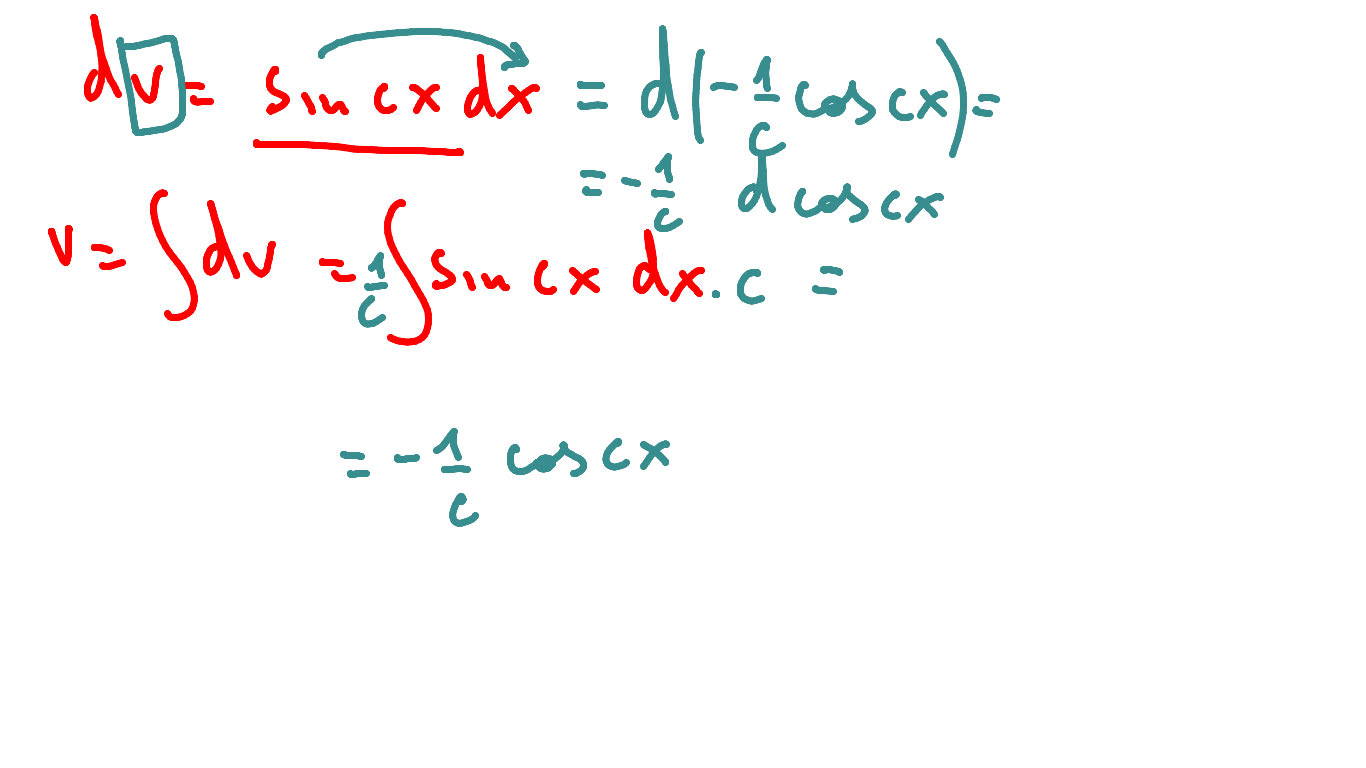 dv = sin cx dx = d(-1/c cos cx) =
= -1/c d cos cx
v = ∫ dv = 1/c ∫ sin cx dx . c =
= -1/c cos cx